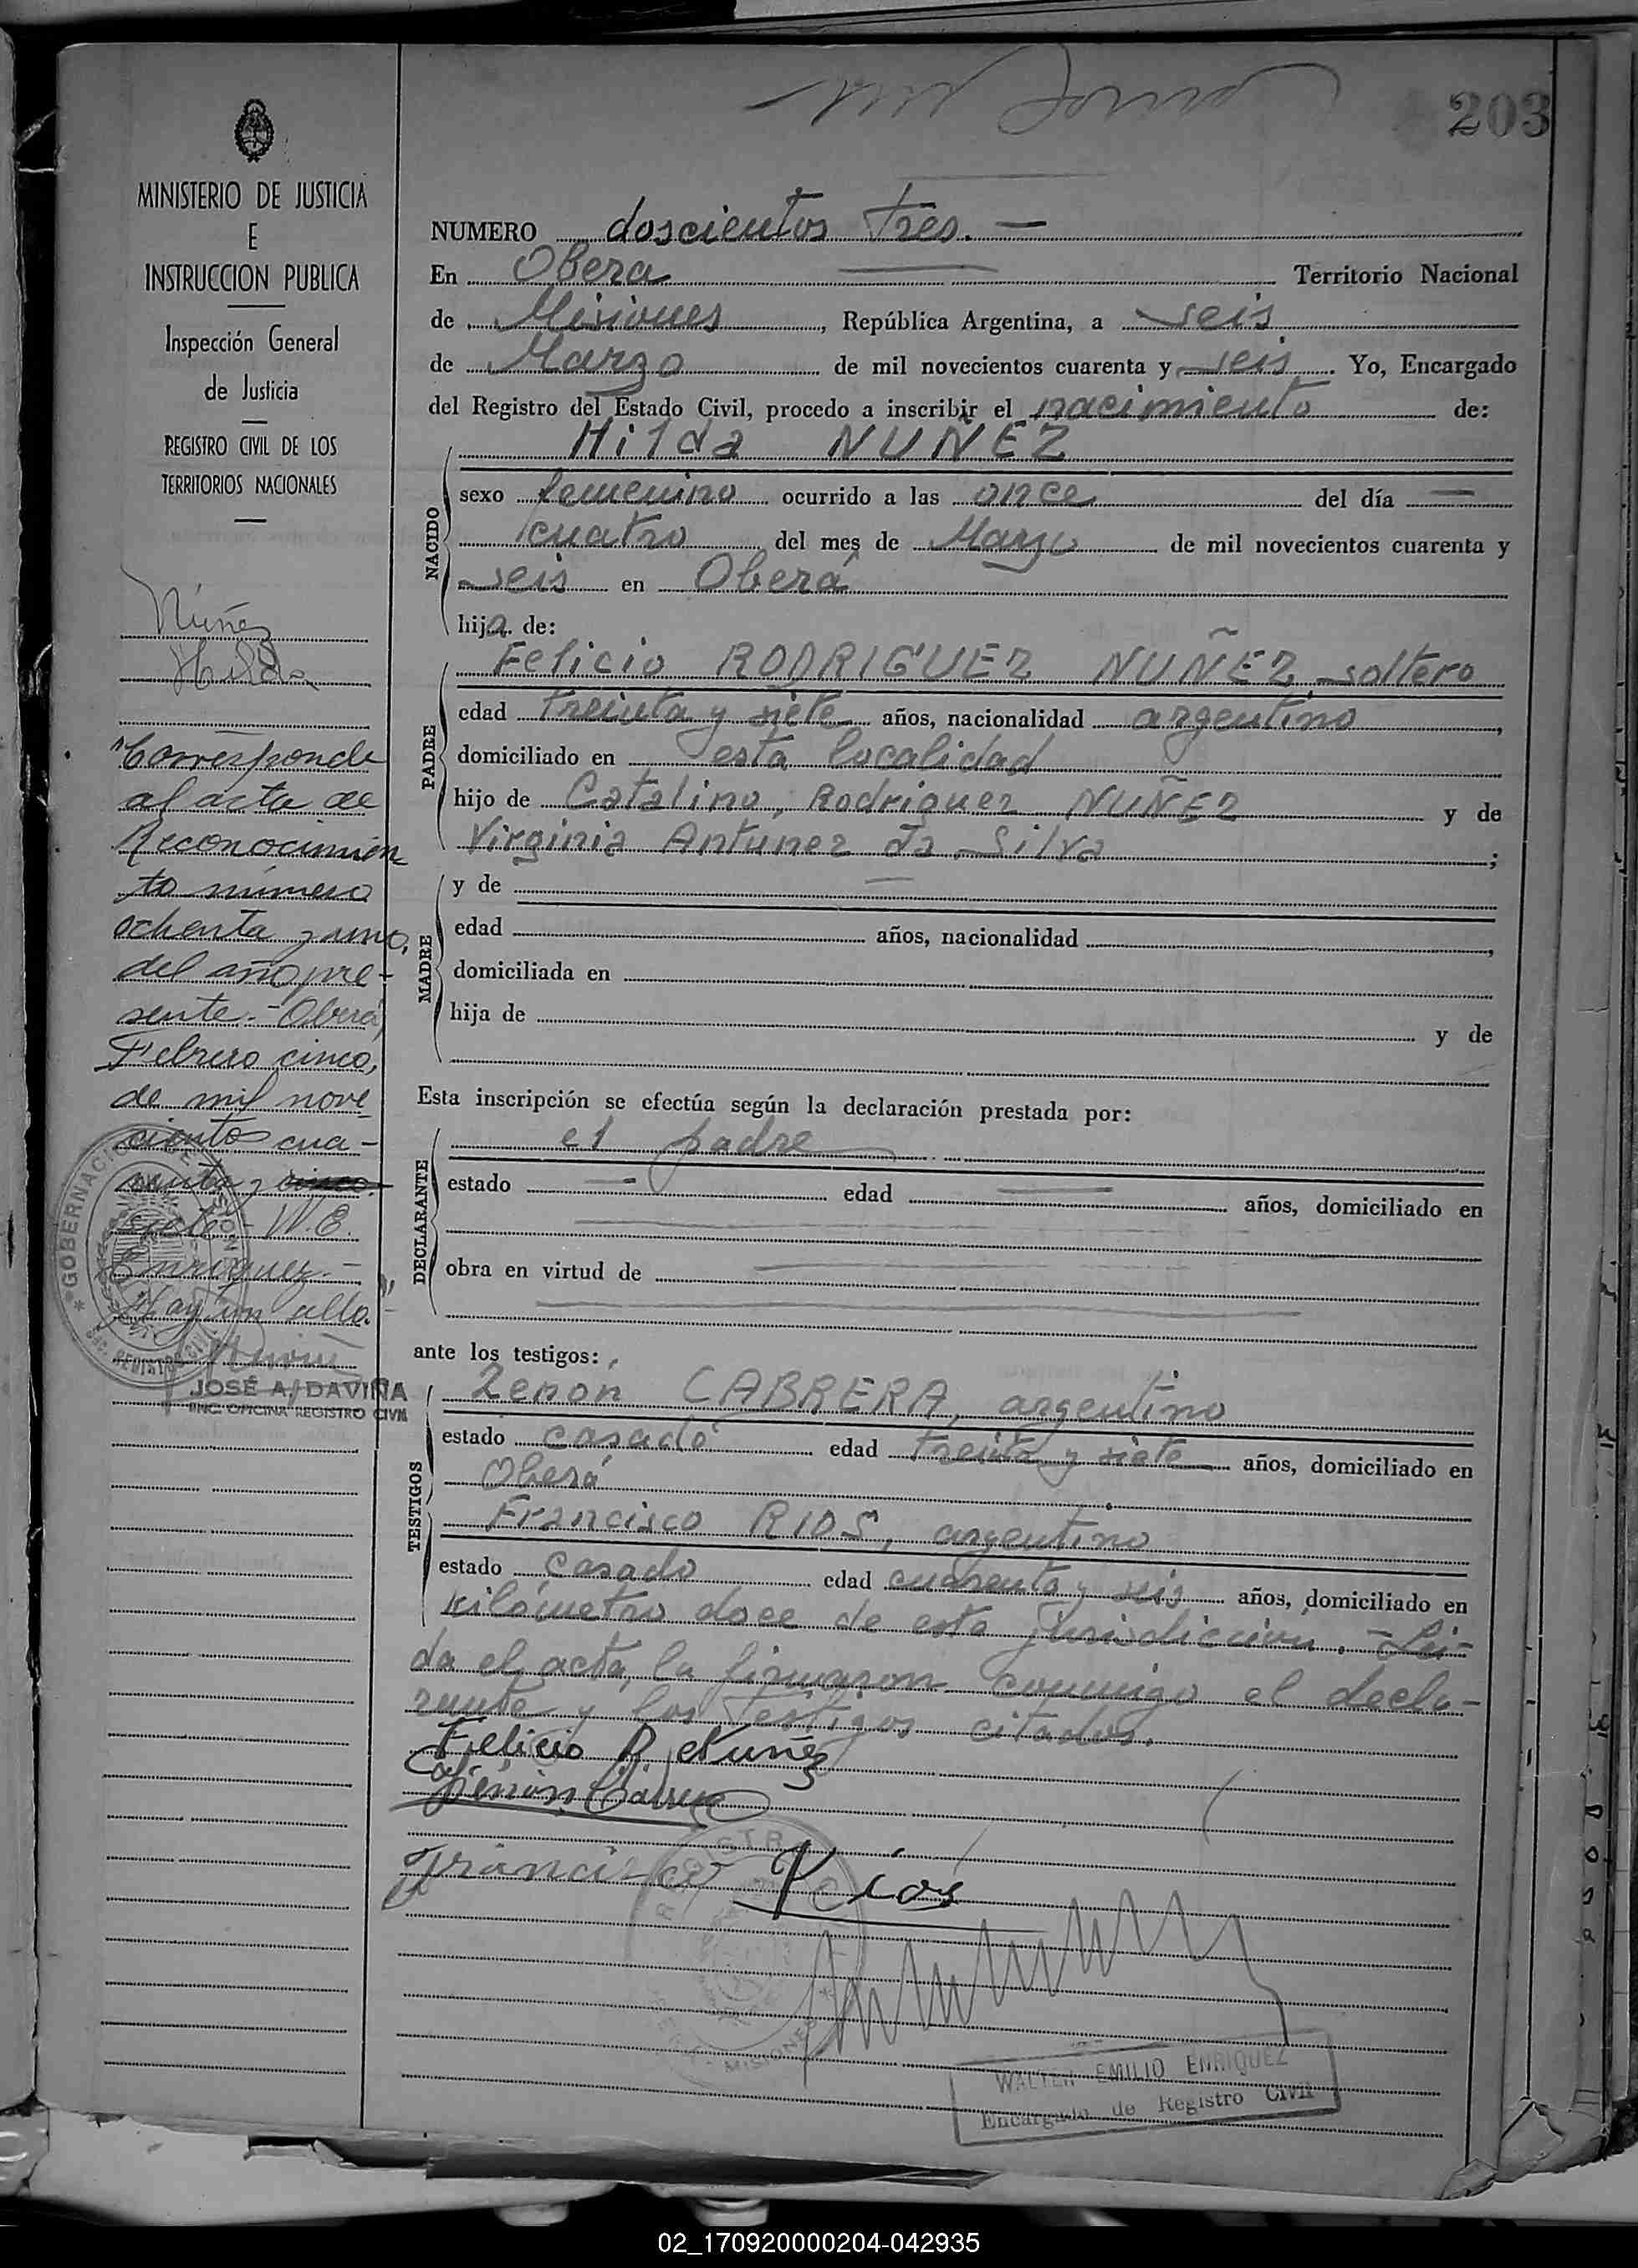 203
MINISTERIO DE JUSTICIA
E
INSTRUCCION PUBLICA
Inspección General
de Justicia
REGISTRO CIVIL DE LOS
TERRITORIOS NACIONALES
Núñez
Hilda
"Corresponde
al acta de
Reconocimien
to número
ochenta y uno,
del año pre-
sente.- Oberá,
Febrero cinco,
de mil nove
cientos cua-
renta y cinco.
siete- W. E.
Enriquez.-
Hay un sello."
JOSÉ A. DAVIÑA
ENC. OFICINA REGISTRO CIVIL
GOBERNACION DE MISIONES
NUMERO doscientos tres. —
En Obera Territorio Nacional
de Misiones, República Argentina, a seis
de Marzo de mil novecientos cuarenta y seis. Yo, Encargado
del Registro del Estado Civil, procedo a inscribir el nacimiento de:
Hilda NUÑEZ
NACIDO
sexo femenino ocurrido a las once del día —
cuatro del mes de Marzo de mil novecientos cuarenta y
seis en Oberá
hija de:
PADRE
Felicio RODRIGUEZ NUÑEZ, soltero
edad treinta y siete años, nacionalidad argentino,
domiciliado en esta localidad
hijo de Catalino Rodriguez NUÑEZ y de
Virginia Antunez da Silva;
MADRE
y de —
edad años, nacionalidad ,
domiciliada en
hija de y de
Esta inscripción se efectúa según la declaración prestada por:
DECLARANTE
el padre
estado — edad — años, domiciliado en
obra en virtud de
ante los testigos:
TESTIGOS
Zenon CABRERA, argentino
estado casado edad treinta y siete años, domiciliado en
Oberá
Francisco RIOS, argentino
estado casado edad cuarenta y seis años, domiciliado en
kilómetro doce de esta jurisdicción. - Lei-
da el acta, la firmaron conmigo el decla-
rante y los testigos citados.
Felicio R Nuñez
Zenon Cabrera
Francisco Rios
MISIONES
WALTER EMILIO ENRIQUEZ
Encargado de Registro Civil
02_170920000204-042935